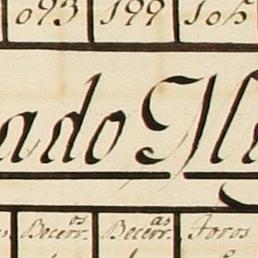 093 199 105
ado
Becerr.os Becerr.as Toros